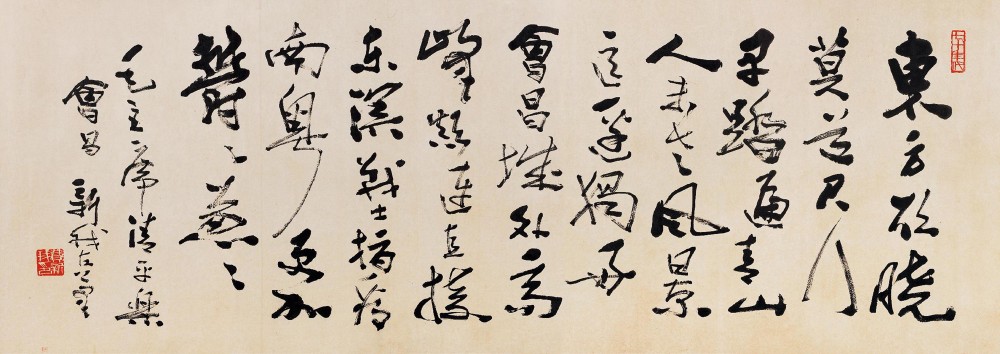 東方欲晓
莫道君行
早踏遍青山
人未老风景
這邊獨好
會昌城外高
峰颠連直接
东溟战士指看
南粤更加
鬱々葱々
毛主席清平樂
會昌 新我左筆